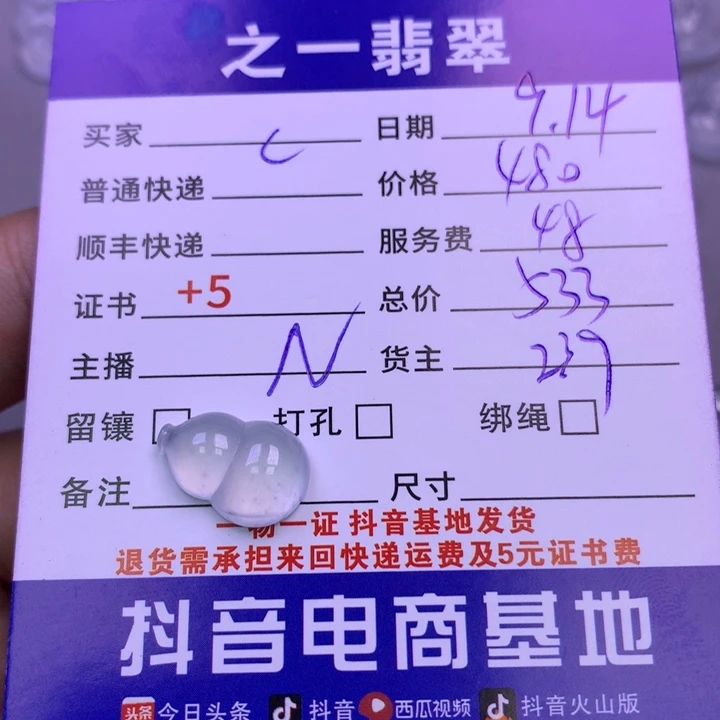 之一翡翠
买家 日期 9.14
普通快递 价格 480
顺丰快递 服务费 48
证书 +5 总价 533
主播 N 货主 239
留镶 打孔 绑绳
备注 尺寸
一物一证 抖音基地发货
退货需承担来回快递运费及5元证书费
抖音电商基地
头条 今日头条 抖音 西瓜视频 抖音火山版